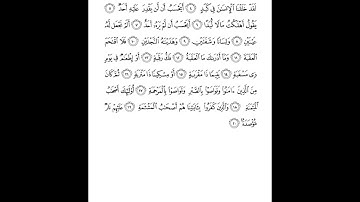 لَقَدْ خَلَقْنَا ٱلْإِنسَٰنَ فِى كَبَدٍ ٤ أَيَحْسَبُ أَن لَّن يَقْدِرَ عَلَيْهِ أَحَدٌ ٥
يَقُولُ أَهْلَكْتُ مَالًا لُّبَدًا ٦ أَيَحْسَبُ أَن لَّمْ يَرَهُۥٓ أَحَدٌ ٧ أَلَمْ نَجْعَل لَّهُۥ
عَيْنَيْنِ ٨ وَلِسَانًا وَشَفَتَيْنِ ٩ وَهَدَيْنَٰهُ ٱلنَّجْدَيْنِ ١٠ فَلَا ٱقْتَحَمَ
ٱلْعَقَبَةَ ١١ وَمَآ أَدْرَىٰكَ مَا ٱلْعَقَبَةُ ١٢ فَكُّ رَقَبَةٍ ١٣ أَوْ إِطْعَٰمٌ فِى يَوْمٍ
ذِى مَسْغَبَةٍ ١٤ يَتِيمًا ذَا مَقْرَبَةٍ ١٥ أَوْ مِسْكِينًا ذَا مَتْرَبَةٍ ١٦ ثُمَّ كَانَ
مِنَ ٱلَّذِينَ ءَامَنُوا۟ وَتَوَاصَوْا۟ بِٱلصَّبْرِ وَتَوَاصَوْا۟ بِٱلْمَرْحَمَةِ ١٧ أُو۟لَٰٓئِكَ أَصْحَٰبُ
ٱلْمَيْمَنَةِ ١٨ وَٱلَّذِينَ كَفَرُوا۟ بِـَٔايَٰتِنَا هُمْ أَصْحَٰبُ ٱلْمَشْـَٔمَةِ ١٩ عَلَيْهِمْ نَارٌ
مُّؤْصَدَةٌۢ ٢٠